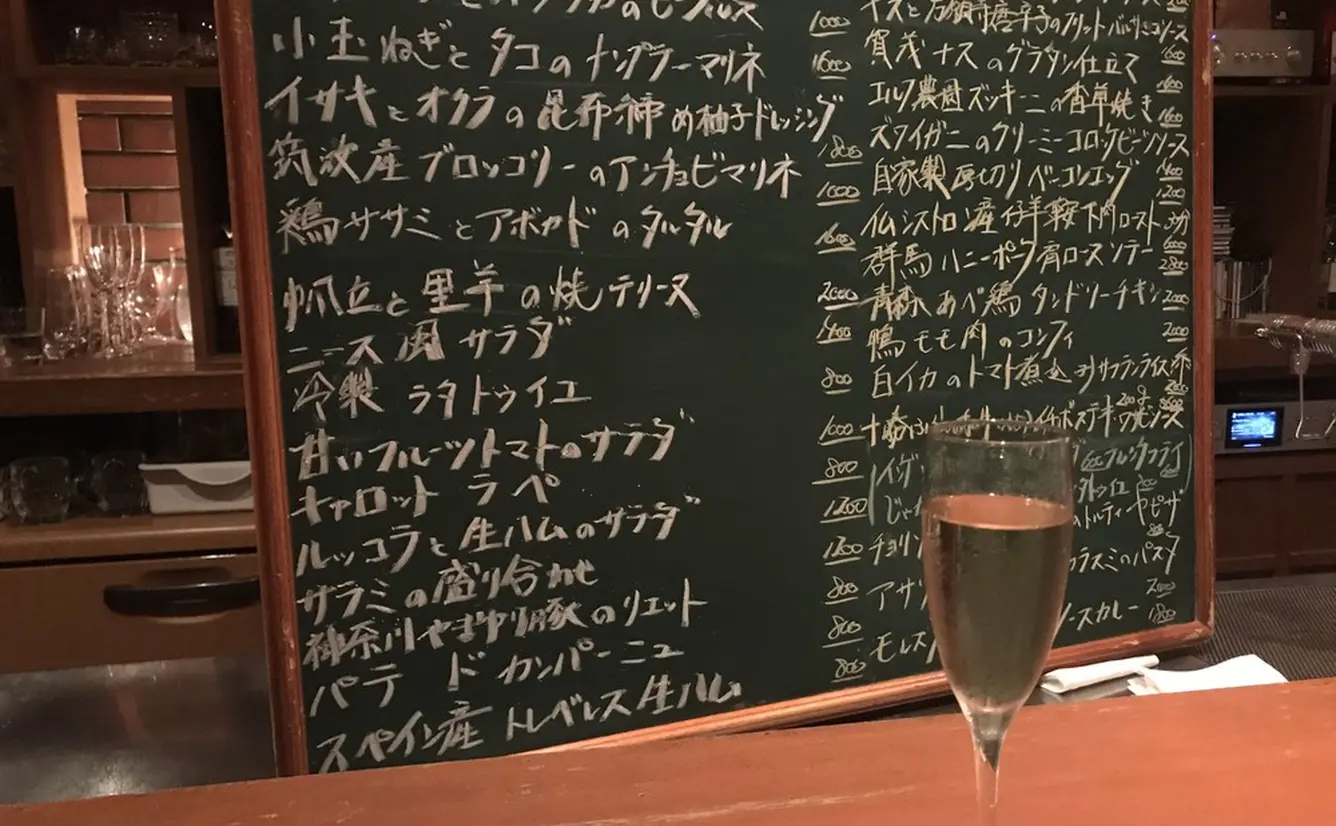 小玉ねぎとタコのナンプラーマリネ
イサキとオクラの昆布締め柚子ドレッシング
筑波産ブロッコリーのアンチョビマリネ
鶏ササミとアボカドのタルタル
帆立と里芋の焼テリーヌ
ニース風サラダ
冷製 ラタトゥイユ
甘いフルーツトマトのサラダ
キャロット ラペ
ルッコラと生ハムのサラダ
サラミの盛り合わせ
神奈川やまゆり豚のリエット
パテ ド カンパーニュ
スペイン産 トレベレス生ハム
1000
1600
1800
1000
1600
2000
1400
800
1000
800
1200
1200
800
800
800
ナスと万願寺唐辛子のフリットバルサミコソース
賀茂ナスのグラタン仕立て
1600
ズッキーニの香草焼き
1600
ズワイガニのクリーミーコロッケビーンソース
自家製厚切りベーコンエッグ
1200
仏シストロン産仔羊鞍下肉ロースト
群馬ハニーポーク肩ロースソテー
2800
青森あべ鶏タンドリーチキン
2000
鴨モモ肉のコンフィ
2000
白イカのトマト煮込み サフランライス添
イチボステーキ
フレンチフライ
ピザ
カラスミのパスタ
2000
カレー
1800